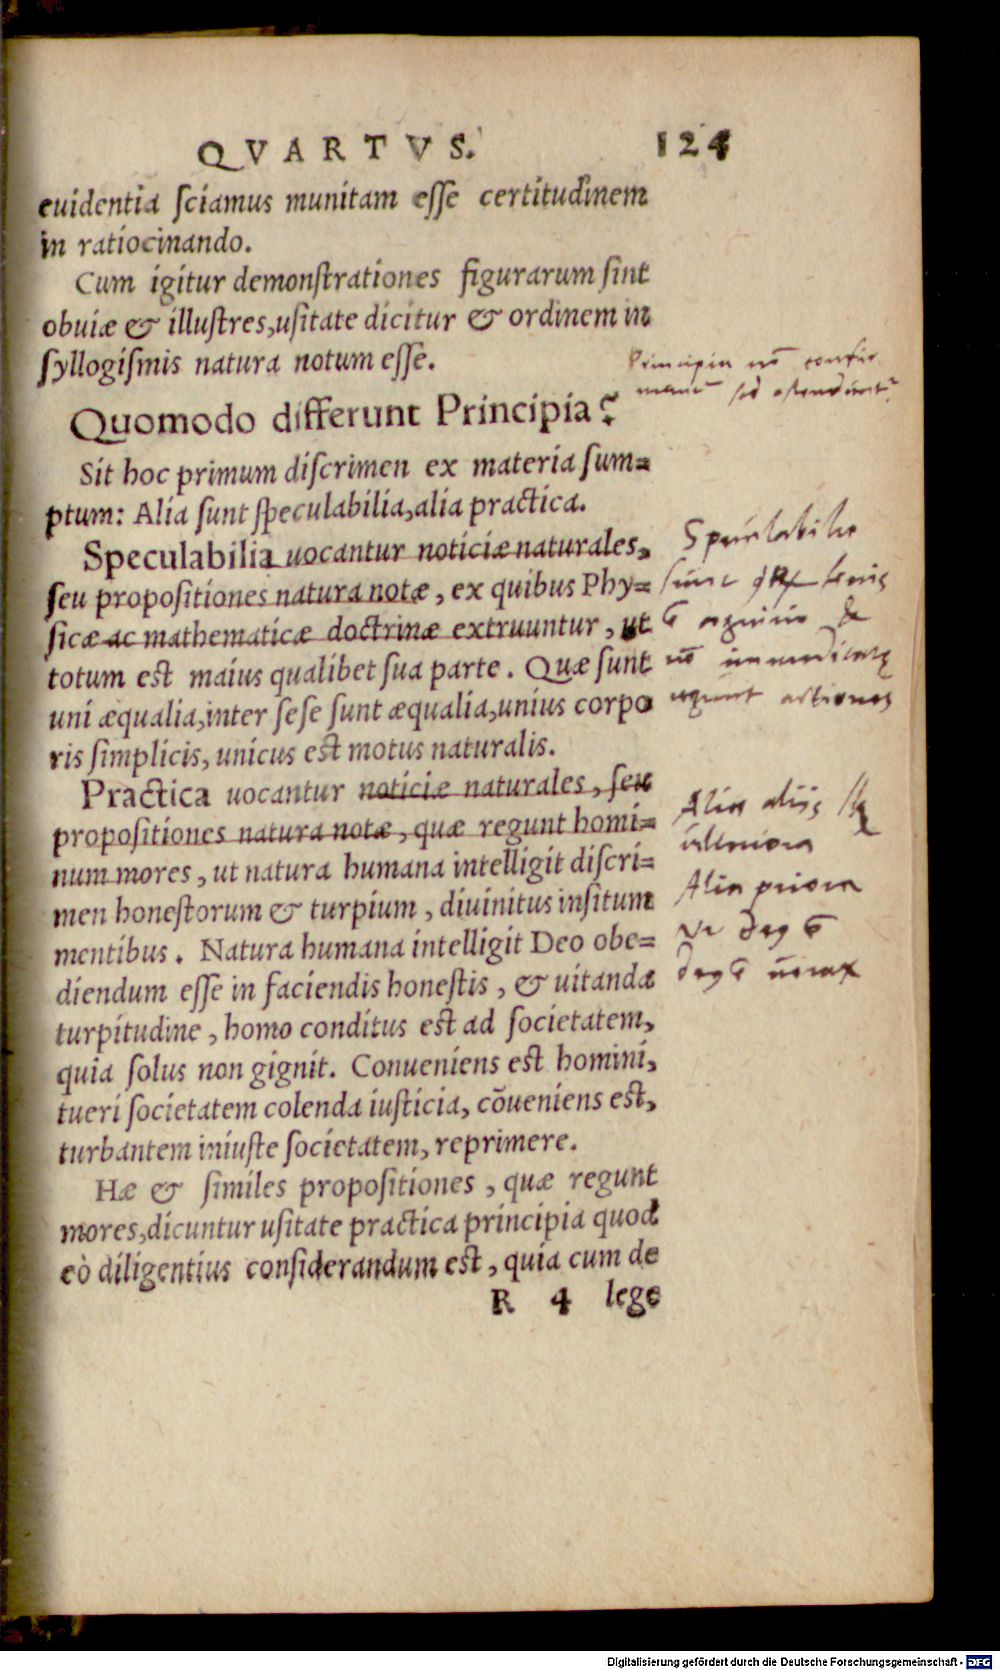 QVARTVS. 124
euidentia ſciamus munitam eſſe certitudinem
in ratiocinando.
Cum igitur demonſtrationes figurarum ſint
obuiæ & illuſtres, uſitate dicitur & ordinem in
ſyllogiſmis natura notum eſſe.
Quomodo differunt Principia?
Sit hoc primum diſcrimen ex materia ſum=
ptum: Alia ſunt ſpeculabilia, alia practica.
Speculabilia uocantur noticiæ naturales,
ſeu propoſitiones natura notæ, ex quibus Phy=
ſicæ ac mathematicæ doctrinæ extruuntur, ut
totum est maius qualibet ſua parte. Quæ ſunt
uni æqualia, inter ſeſe ſunt æqualia, unius corpo
ris ſimplicis, unicus est motus naturalis.
Practica uocantur noticiæ naturales, ſeu
propoſitiones natura notæ, quæ regunt homi=
num mores, ut natura humana intelligit diſcri=
men honeſtorum & turpium, diuinitus inſitum
mentibus. Natura humana intelligit Deo obe=
diendum eſſe in faciendis honeſtis, & uitanda
turpitudine, homo conditus est ad ſocietatem,
quia ſolus non gignit. Conueniens est homini,
tueri ſocietatem colenda iuſticia, cõueniens est,
turbantem iniuſte ſocietatem, reprimere.
Hæ & ſimiles propoſitiones, quæ regunt
mores, dicuntur uſitate practica principia quod
eò diligentius conſiderandum est, quia cum de
R 4 lege
Principia
Speculabilia
actiones
Alia aliis
Alia priora
Digitalisierung gefördert durch die Deutsche Forschungsgemeinschaft - DFG